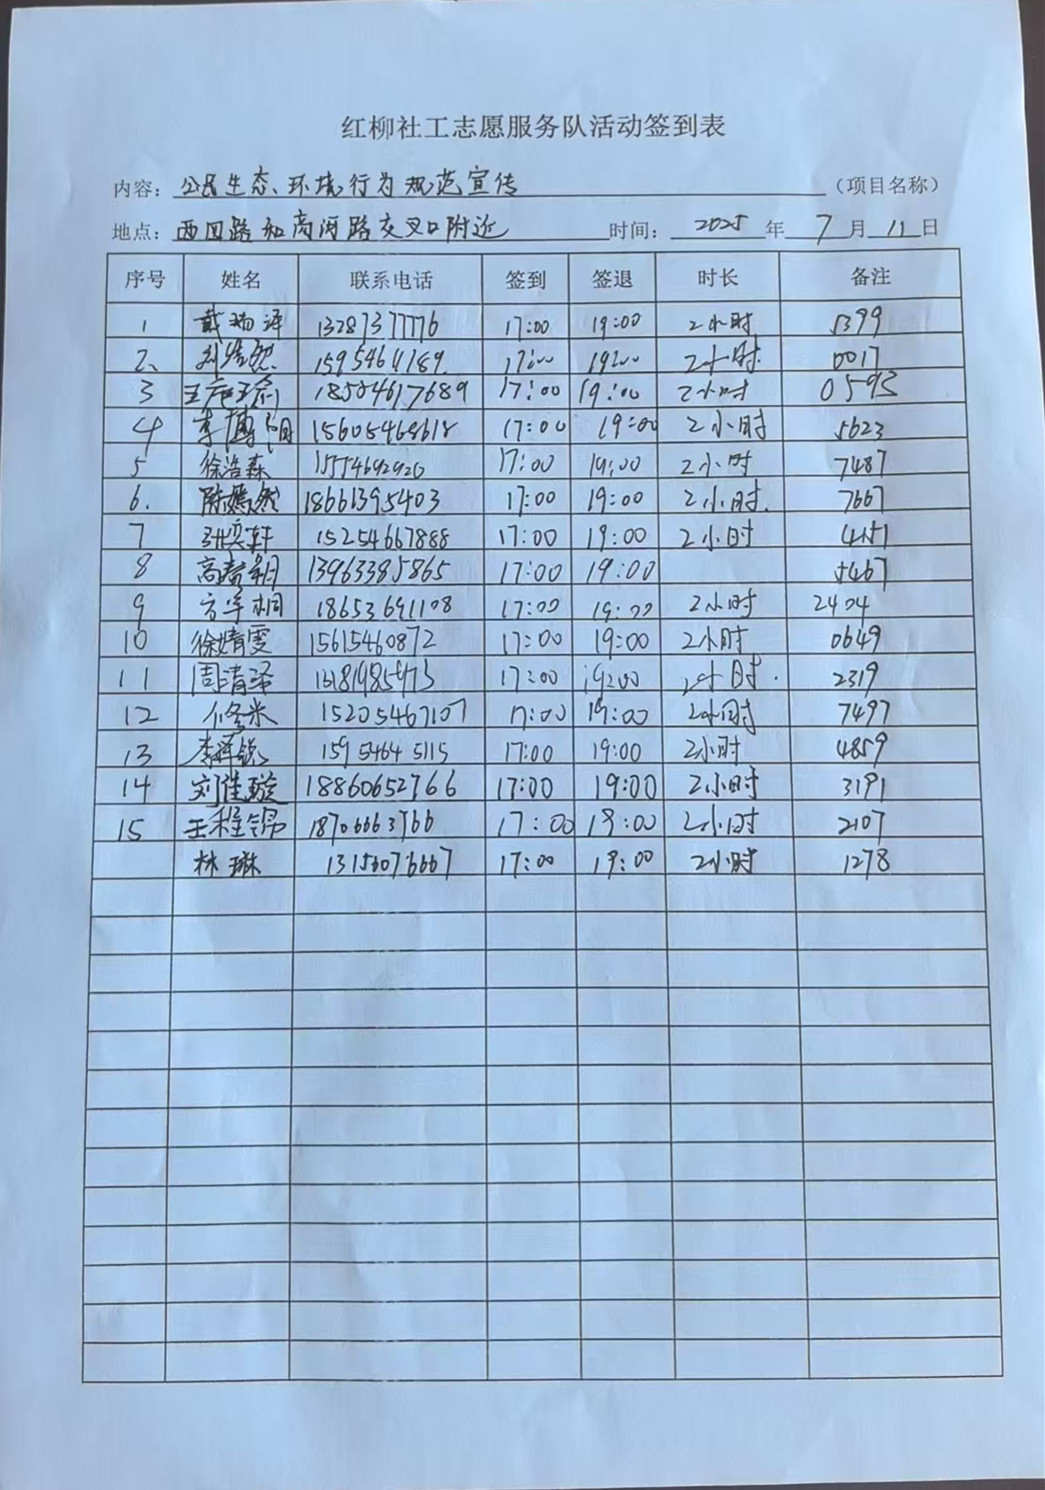 红柳社工志愿服务队活动签到表
内容：公民生态、环境行为规范宣传（项目名称）
地点：西四路和商河路交叉口附近 时间：2025年7月11日
序号 姓名 联系电话 签到 签退 时长 备注
1 戴 泽 13287377776 17:00 19:00 2小时 5399
2、 刘 15954641189. 17:00 19:00 2小时. 0017
3 王 18504617689 17:00 19:00 2小时 0593
4 李博阳 15605468618 17:00 19:00 2小时 5623
5 徐浩森 15554692920 17:00 19:00 2小时 7487
6. 陈嫣然 18661395403 17:00 19:00 2小时. 7667
7 张奕轩 15254667888 17:00 19:00 2小时 4151
8 高 13963385865 17:00 19:00 5467
9 方宇桐 18653691108 17:00 19:00 2小时 2404
10 徐婧雯 15615460872 17:00 19:00 2小时 0649
11 周清泽 17:00 19:00 2小时. 2319
12 修米 15205467107 17:00 19:00 2小时 7497
13 李 锐 159 5464 5115 17:00 19:00 2小时 4859
14 刘佳璇 18860652766 17:00 19:00 2小时 3191
15 王程锦 18706663766 17:00 19:00 2小时 2107
林琳 13156076667 17:00 19:00 2小时 1278